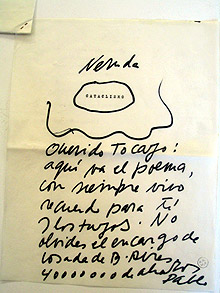 Neruda
CATACLISMO
Querido Tocayo:
aquí va el poema,
con siempre vivo
recuerdo para tí
y los tuyos. No
olvides el encargo de
de B. Aires
Pablo